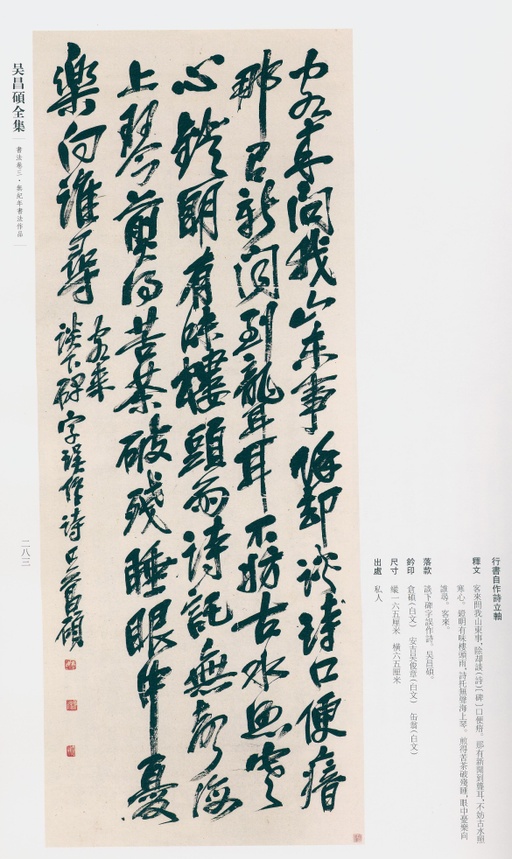 行書自作詩立軸
釋文 客來問我山東事，除却談（詩）〔碑〕口便瘖。那有新聞到聾耳，不妨古水照
寒心。鐙明有味樓頭雨，詩託無聲海上琴。煎得苦茶破殘睡，眼中憂樂向
誰尋。客來。
落款 談下碑字誤作詩。吴昌碩。
鈐印 倉碩（白文） 安吉吴俊章（白文） 缶翁（白文）
尺寸 縱一六五厘米 橫六五厘米
出處 私人
客來問我山東事除却談詩口便瘖
那有新聞到聾耳不妨古水照寒
心鐙明有味樓頭雨詩託無聲海
上琴煎得苦茶破殘睡眼中憂
樂向誰尋
客來
談下碑字誤作詩吴昌碩
吴昌碩全集
書法卷三·無紀年書法作品
二八三